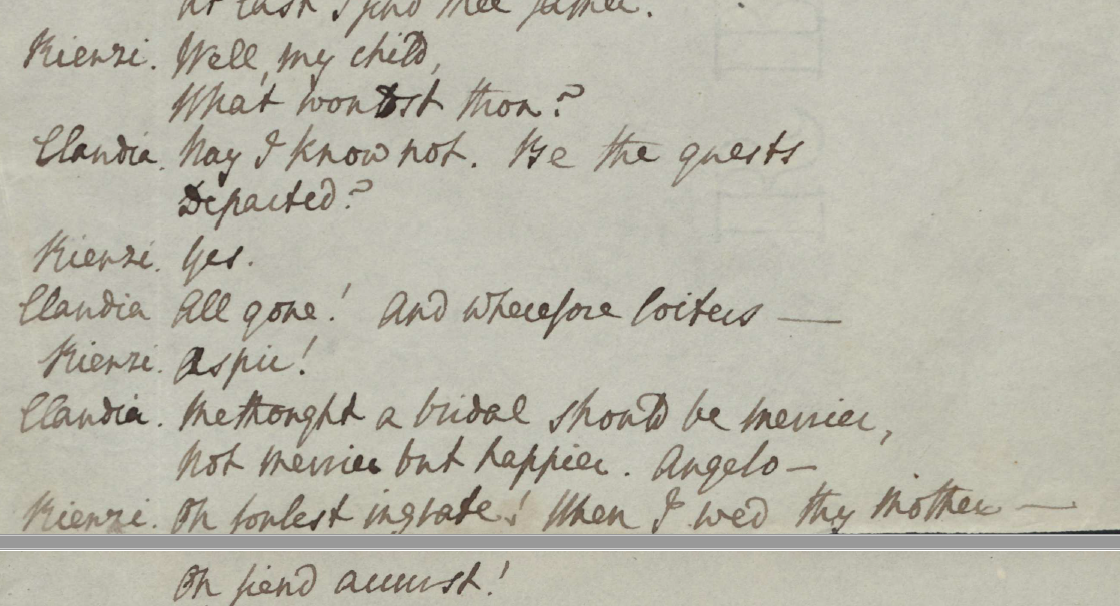 At last I find thee father.
Rienzi. Well, my child,
What wouldst thou?
Claudia. Nay I know not. Be the guests
Departed?
Rienzi. Yes.
Claudia All gone! And wherefore loiters —
Rienzi. Aspic!
Claudia. Methought a bridal should be merrier,
Not merrier but happier. Angelo —
Rienzi. Oh foulest ingrate! When I wed thy Mother —
Oh fiend accurst!